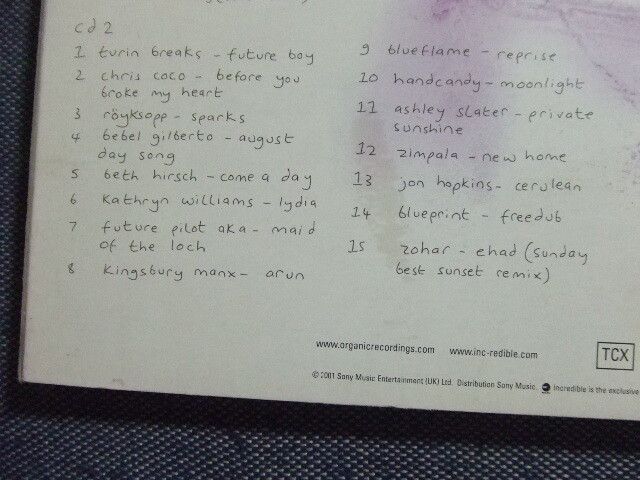 cd 2
1 turin breaks - future boy
2 chris coco - before you
broke my heart
3 röyksopp - sparks
4 bebel gilberto - august
day song
5 beth hirsch - come a day
6 kathryn williams - lydia
7 future pilot aka - maid
of the loch
8 kingsbury manx - arun
9 blueflame - reprise
10 handcandy - moonlight
11 ashley slater - private
sunshine
12 zimpala - new home
13 jon hopkins - cerulean
14 blueprint - freedub
15 zohar - ehad (sunday
best sunset remix)
www.organicrecordings.com www.inc-redible.com
TCX
© 2001 Sony Music Entertainment (UK) Ltd. Distribution Sony Music. Incredible is the exclusive